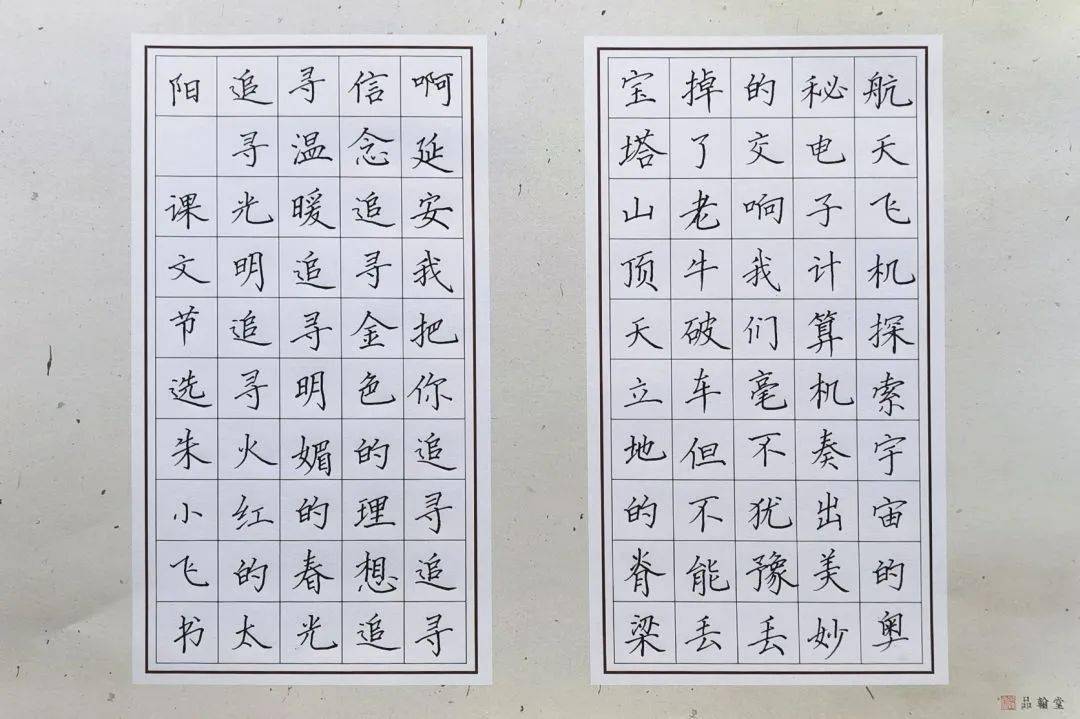 航天飞机探索宇宙的奥
秘电子计算机奏出美妙
的交响我们毫不犹豫丢
掉了老牛破车但不能丢
宝塔山顶天立地的脊梁
啊延安我把你追寻追寻
信念追寻金色的理想追
寻温暖追寻明媚的春光
追寻光明追寻火红的太
阳 课文节选朱小飞书
品翰堂